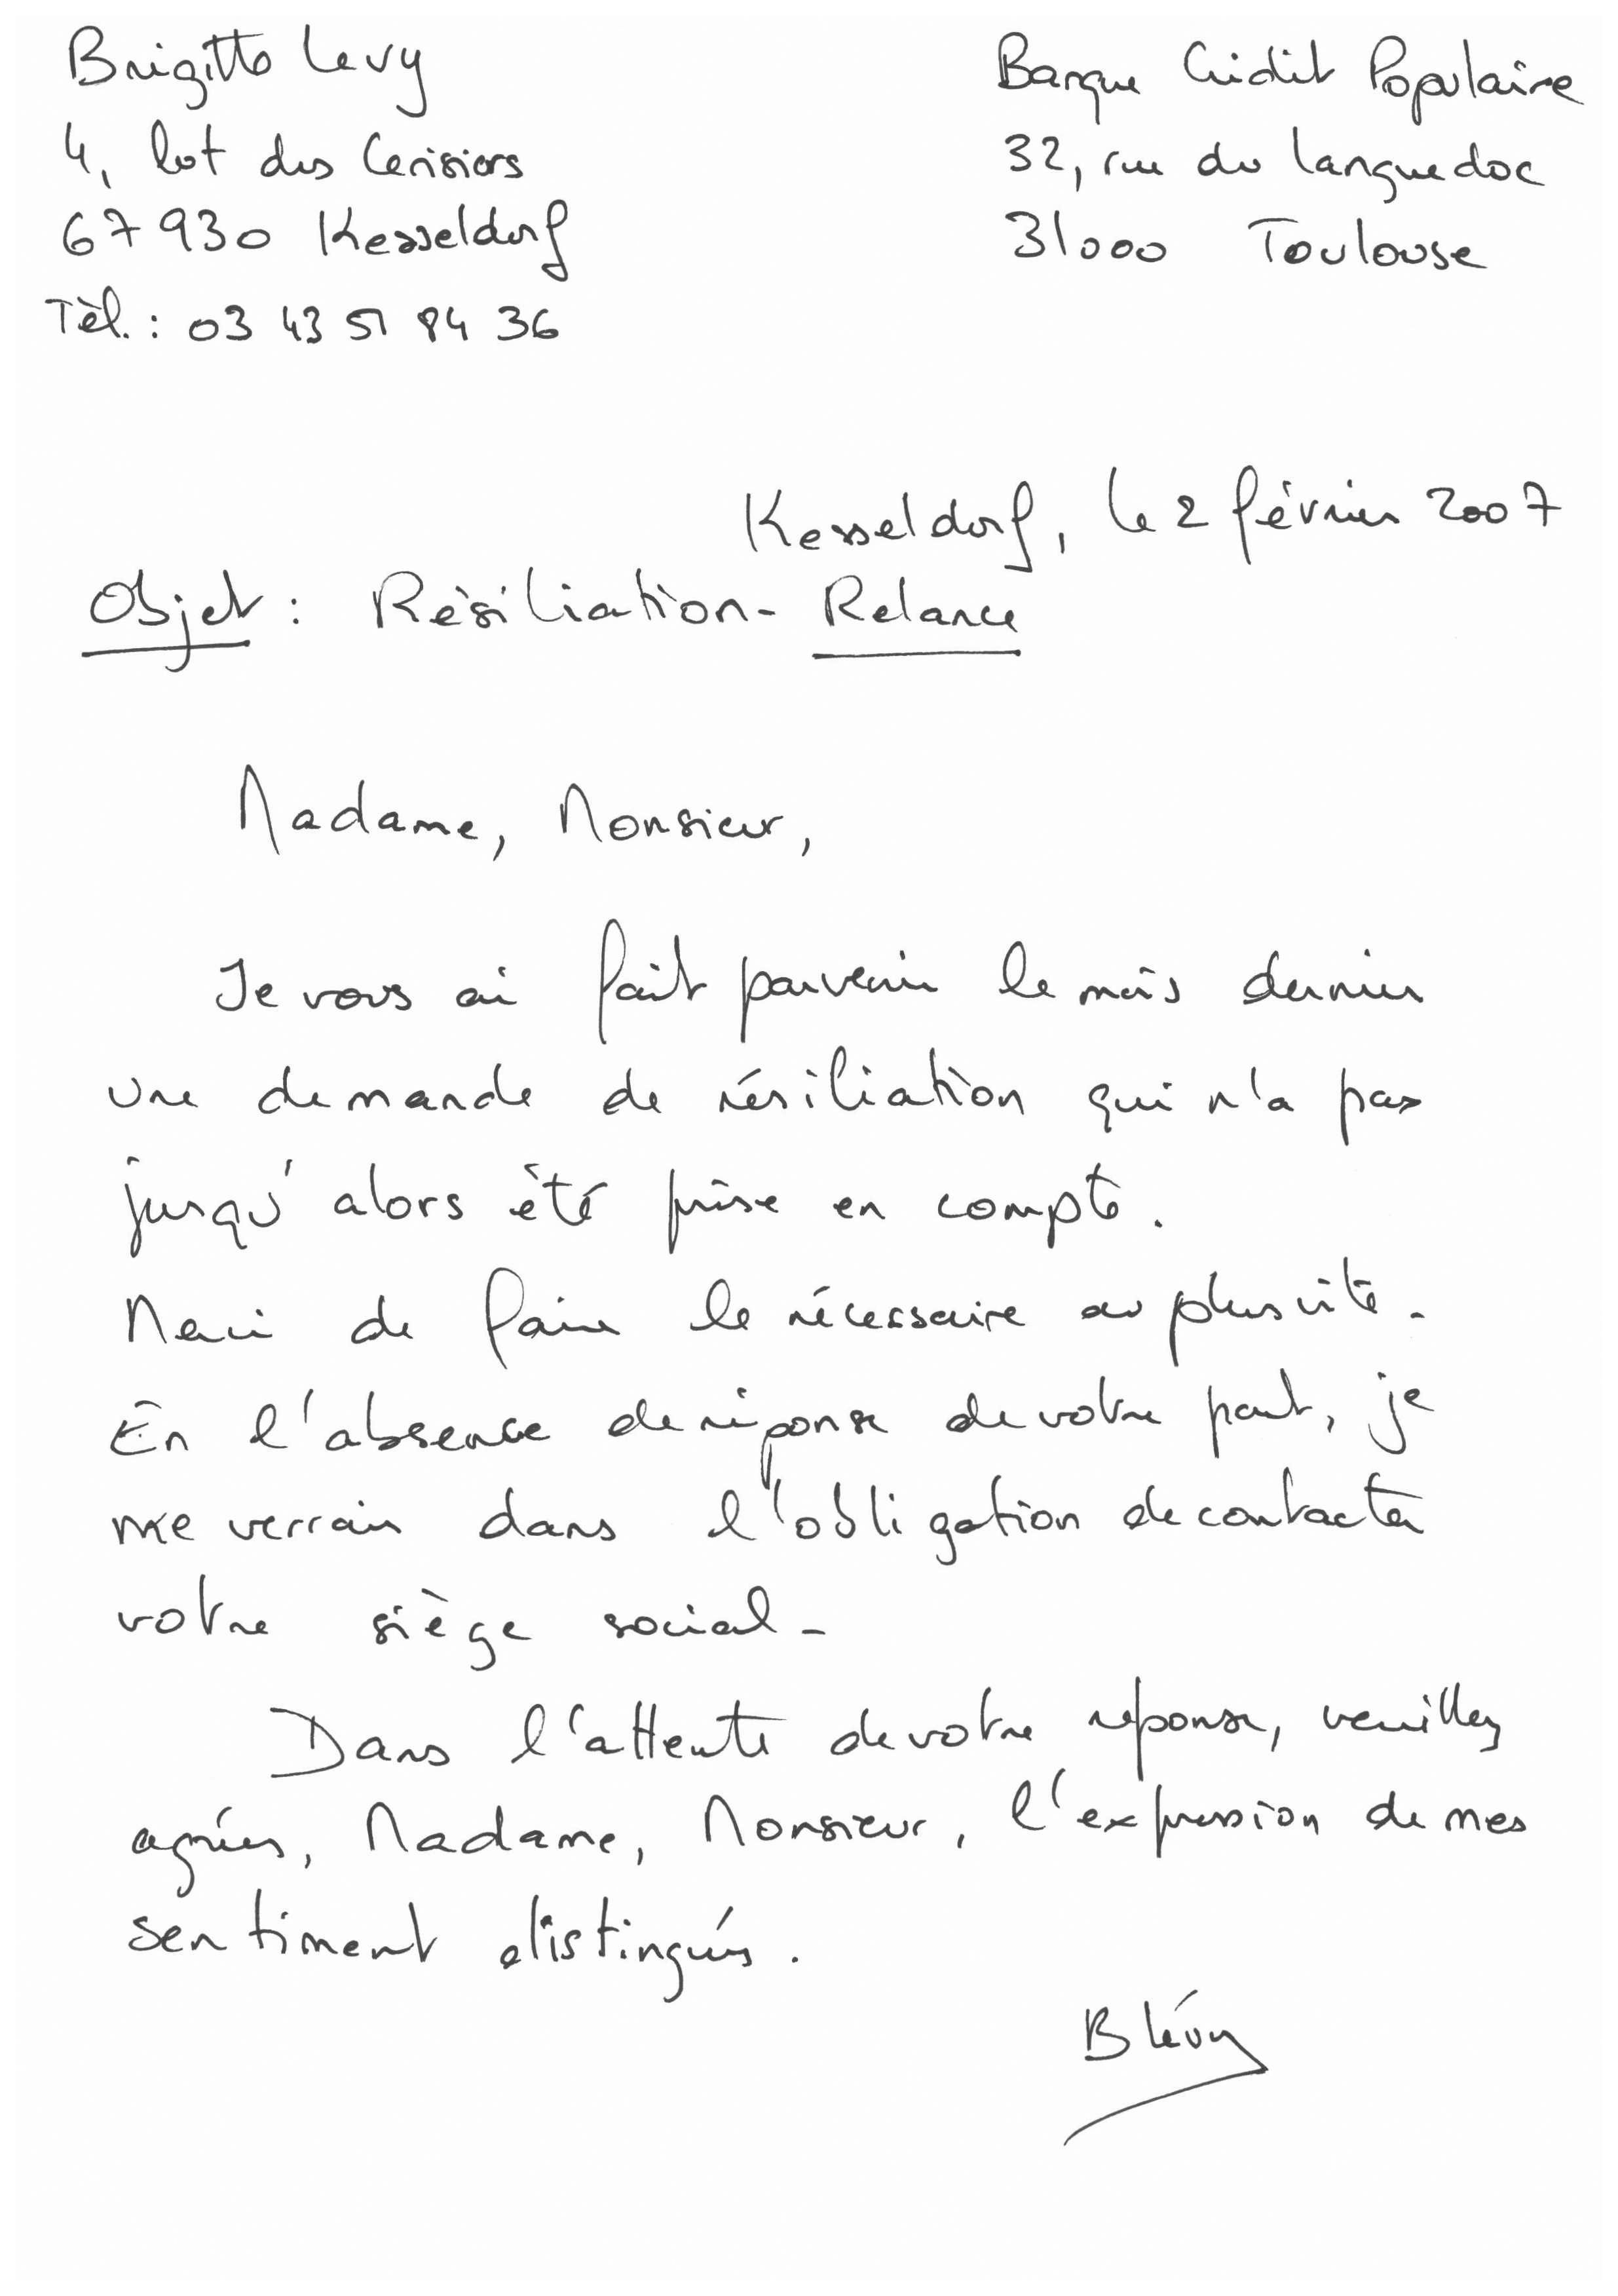 Brigitte Levy
4, lot des Cerisiers
67930 Kesseldorf
Tél. : 03 43 51 84 36
Banque Crédit Populaire
32, rue du Languedoc
31000 Toulouse
Kesseldorf, le 2 février 2007
Objet : Résiliation - Relance
Madame, Monsieur,
Je vous ai fait parvenir le mois dernier
une demande de résiliation qui n'a pas
jusqu'alors été prise en compte.
Merci de faire le nécessaire au plus vite.
En l'absence de réponse de votre part, je
me verrais dans l'obligation de contacter
votre siège social.
Dans l'attente de votre réponse, veuillez
agréer, Madame, Monsieur, l'expression de mes
sentiment distingués.
B Lévy